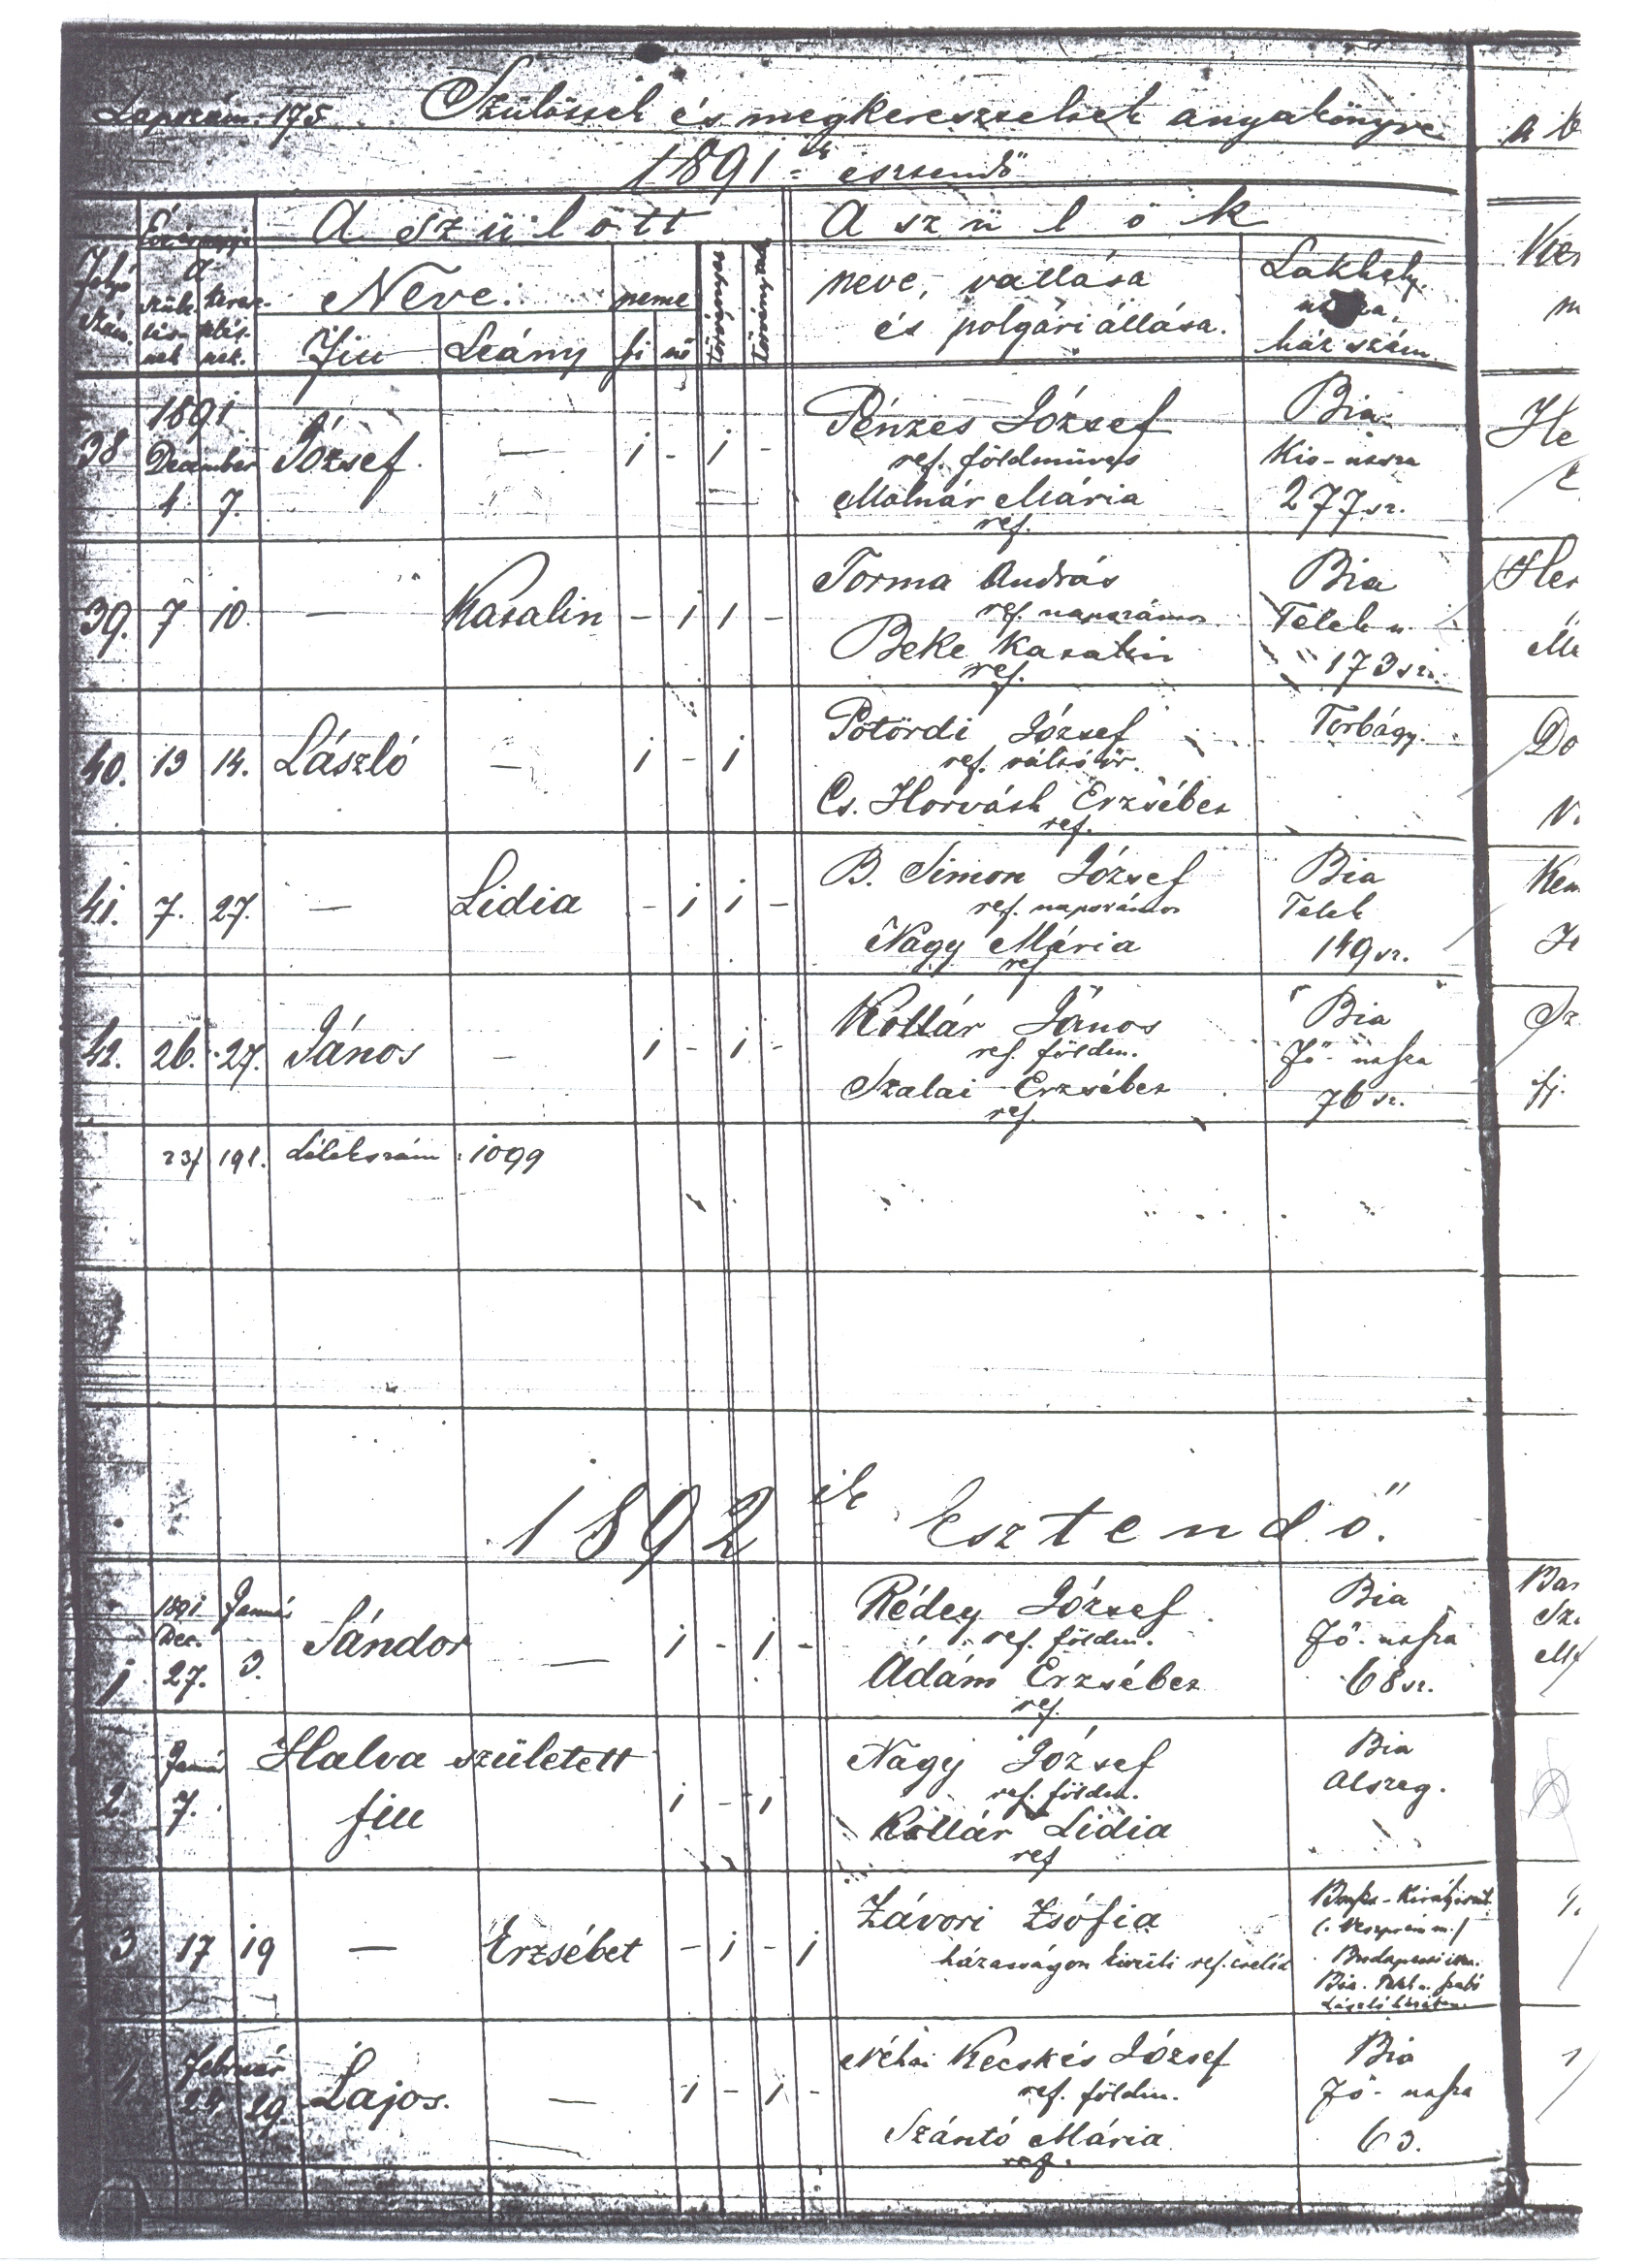 Lapszám: 175. Születtek és megkereszteltek anyakönyve
1891-ik esztendő
A született
A szülők
Folyó szám.
Neve:
neme
neve, vallása
és polgári állása.
Lakhely,
ház szám
Fiu Leány fi nő
törvényes
38 1891 December 4 7. József. — 1 - 1 -
Pénzes József
ref. földműves
Molnár Mária
ref.
Bia
Kis-utcza
277 sz.
39. 7 10. — Katalin - 1 1 -
Torma András
ref. napszámos
Beke Katalin
ref.
Bia
Telek u.
173 sz.
40. 13 14. László — 1 - 1
Pötördi József
ref. váltóőr.
Cs. Horváth Erzsébet
ref.
Torbágy.
41. 7. 27. — Lidia - 1 1 -
B. Simon József
ref. napszámos
Nagy Mária
ref
Bia
Telek
149 sz.
42. 26. 27. János — 1 - 1 -
Kollár János
ref. földm.
Szalai Erzsébet
ref.
Bia
Fő-utsza
76 sz.
23/ 191. Lélekszám: 1099
1892 ik Esztendő.
1 1891 Dec. 27. Január 3. Sándor — 1 - 1 -
Rédey József
ref. földm.
Ádám Erzsébet
ref.
Bia
Fő-utsza
68 sz.
2 Január 7. Halva született
fiu 1 - 1
Nagy József
ref. földm.
Kollár Lidia
ref
Bia
Alszeg.
3 17 19 — Erzsébet - 1 - 1
Závori Zsófia
házasságon kivüli ref. cseléd
(Veszprém m.)
Lajos. — 1 - 1 -
Február
29.
Néhai Kecskés József
ref. földm.
Szántó Mária
ref.
Bia
Fő-utsza
63.